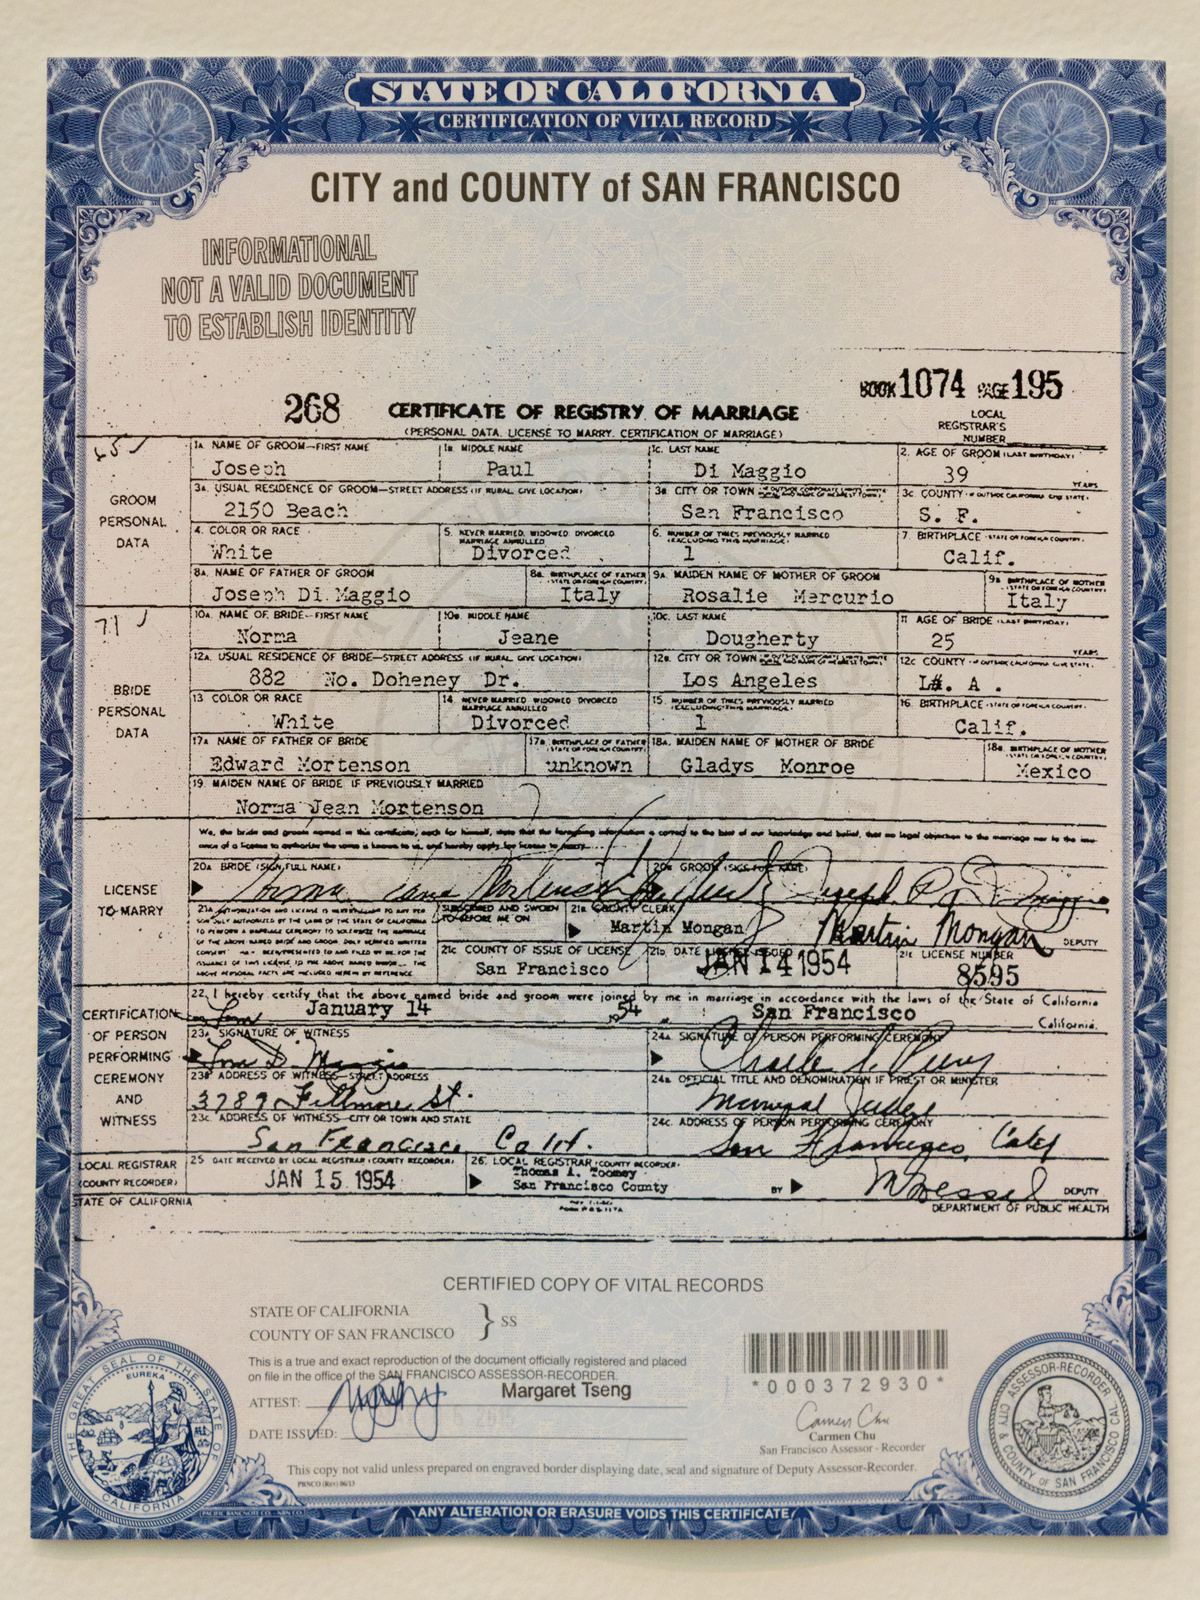 STATE OF CALIFORNIA
CERTIFICATION OF VITAL RECORD
CITY and COUNTY of SAN FRANCISCO
INFORMATIONAL
NOT A VALID DOCUMENT
TO ESTABLISH IDENTITY
BOOK 1074 PAGE 195
268 CERTIFICATE OF REGISTRY OF MARRIAGE
(PERSONAL DATA, LICENSE TO MARRY, CERTIFICATION OF MARRIAGE)
LOCAL
REGISTRAR'S
NUMBER
GROOM
PERSONAL
DATA
1A. NAME OF GROOM—FIRST NAME 1B. MIDDLE NAME 1C. LAST NAME 2. AGE OF GROOM (LAST BIRTHDAY)
Joseph Paul Di Maggio 39 YEARS
3A. USUAL RESIDENCE OF GROOM—STREET ADDRESS (IF RURAL, GIVE LOCATION) 3B. CITY OR TOWN 3C. COUNTY
2150 Beach San Francisco S. F.
4. COLOR OR RACE 5. NEVER MARRIED, WIDOWED, DIVORCED, MARRIAGE ANNULLED 6. NUMBER OF TIMES PREVIOUSLY MARRIED (EXCLUDING THIS MARRIAGE) 7. BIRTHPLACE (STATE OR FOREIGN COUNTRY)
White Divorced 1 Calif.
8A. NAME OF FATHER OF GROOM 8B. BIRTHPLACE OF FATHER (STATE OR FOREIGN COUNTRY) 9A. MAIDEN NAME OF MOTHER OF GROOM 9B. BIRTHPLACE OF MOTHER (STATE OR FOREIGN COUNTRY)
Joseph Di Maggio Italy Rosalie Mercurio Italy
71
BRIDE
PERSONAL
DATA
10A. NAME OF BRIDE—FIRST NAME 10B. MIDDLE NAME 10C. LAST NAME 11 AGE OF BRIDE (LAST BIRTHDAY)
Norma Jeane Dougherty 25 YEARS
12A. USUAL RESIDENCE OF BRIDE—STREET ADDRESS (IF RURAL, GIVE LOCATION) 12B. CITY OR TOWN 12C COUNTY
882 No. Doheney Dr. Los Angeles L. A.
13 COLOR OR RACE 14. NEVER MARRIED WIDOWED DIVORCED MARRIAGE ANNULLED 15. NUMBER OF TIMES PREVIOUSLY MARRIED (EXCLUDING THIS MARRIAGE) 16. BIRTHPLACE (STATE OR FOREIGN COUNTRY)
White Divorced 1 Calif.
17A NAME OF FATHER OF BRIDE 17B. BIRTHPLACE OF FATHER (STATE OR FOREIGN COUNTRY) 18A. MAIDEN NAME OF MOTHER OF BRIDE 18B. BIRTHPLACE OF MOTHER (STATE OR FOREIGN COUNTRY)
Edward Mortenson unknown Gladys Monroe Mexico
19. MAIDEN NAME OF BRIDE IF PREVIOUSLY MARRIED
Norma Jean Mortenson
We, the bride and groom named in this certificate, each for himself, state that the foregoing information is correct to the best of our knowledge and belief, that no legal objection to the marriage nor to the issu-
ance of a license to authorize the same is known to us, and hereby apply for license to marry.
LICENSE
TO MARRY
20A BRIDE (SIGN FULL NAME) 20B GROOM (SIGN FULL NAME)
Norma Jeane Mortenson Dougherty Joseph P Di Maggio
21A AUTHORIZATION AND LICENSE IS HEREBY GIVEN TO ANY PER-
SON DULY AUTHORIZED BY THE LAWS OF THE STATE OF CALIFORNIA
TO PERFORM A MARRIAGE CEREMONY TO SOLEMNIZE THE MARRIAGE
OF THE ABOVE NAMED BRIDE AND GROOM.
SUBSCRIBED AND SWORN
TO BEFORE ME ON
21B COUNTY CLERK
Martin Mongan Martin Mongan DEPUTY
21C COUNTY OF ISSUE OF LICENSE 21D DATE LICENSE ISSUED 21E LICENSE NUMBER
San Francisco JAN 14 1954 8595
CERTIFICATION
OF PERSON
PERFORMING
CEREMONY
AND
WITNESS
22. I hereby certify that the above named bride and groom were joined by me in marriage in accordance with the laws of the State of California
January 14 1954 San Francisco California.
23A SIGNATURE OF WITNESS 24A. SIGNATURE OF PERSON PERFORMING CEREMONY
Tom Di Maggio Charles S. Peery
23B ADDRESS OF WITNESS—STREET ADDRESS 24B OFFICIAL TITLE AND DENOMINATION IF PRIEST OR MINISTER
3789 Fillmore St. Municipal Judge
23C. ADDRESS OF WITNESS—CITY OR TOWN AND STATE 24C. ADDRESS OF PERSON PERFORMING CEREMONY
San Francisco Calif. San Francisco, Calif
LOCAL REGISTRAR
(COUNTY RECORDER)
25 DATE RECEIVED BY LOCAL REGISTRAR (COUNTY RECORDER) 26. LOCAL REGISTRAR (COUNTY RECORDER)
JAN 15 1954 Thomas A. Toomey
San Francisco County BY DEPUTY
STATE OF CALIFORNIA DEPARTMENT OF PUBLIC HEALTH
CERTIFIED COPY OF VITAL RECORDS
STATE OF CALIFORNIA
COUNTY OF SAN FRANCISCO } SS
This is a true and exact reproduction of the document officially registered and placed
on file in the office of the SAN FRANCISCO ASSESSOR-RECORDER.
ATTEST: Margaret Tseng
DATE ISSUED:
*000372930*
Carmen Chu
Carmen Chu
San Francisco Assessor - Recorder
This copy not valid unless prepared on engraved border displaying date, seal and signature of Deputy Assessor-Recorder.
PBNCO (Rev) 06/13
PACIFIC BANKNOTE CO.
ANY ALTERATION OR ERASURE VOIDS THIS CERTIFICATE
THE GREAT SEAL OF THE STATE OF CALIFORNIA
EUREKA
ASSESSOR-RECORDER
CITY & COUNTY OF SAN FRANCISCO CAL